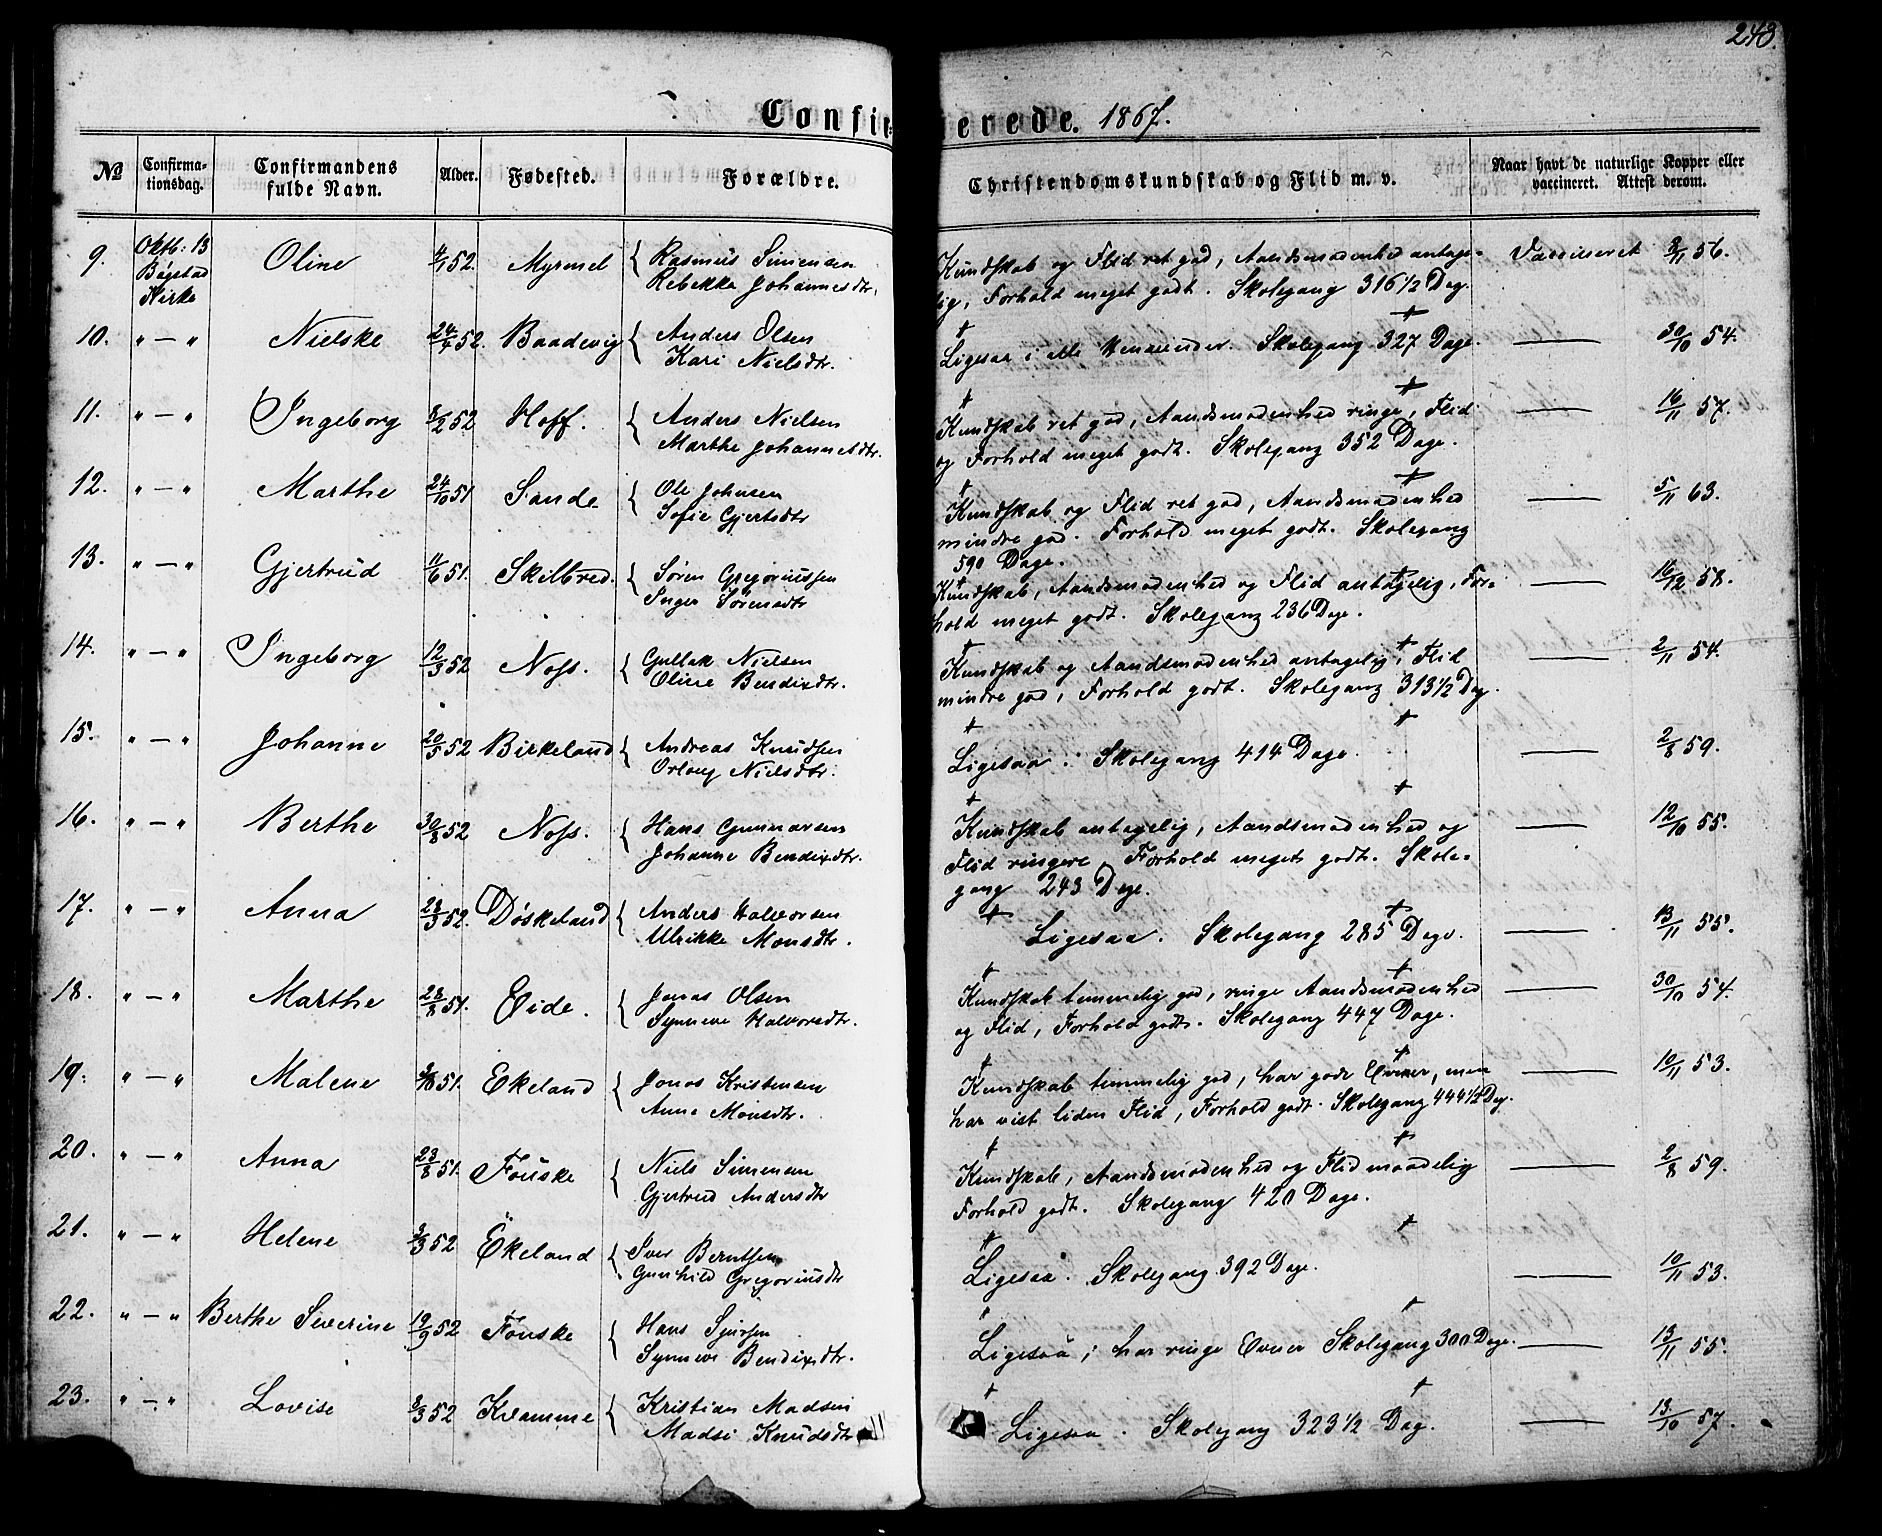 243.
Confirmerede. 1867.
№ Confirmationsdag. Confirmandens fulde Navn. Alder. Fødested. Forældre. Christendomskundskab og Flid m. v. Naar havt de naturlige Kopper eller vaccineret. Attest derom.
9. Oktb: 13 Bøgstad Kirke Oline 52. Myrmel { Rasmus Simensen
Rebekka Johannesdtr.
Kundskab og Flid ret god, Aandsmodenhed antage-
lig, Forhold meget godt. Skolegang 316 1/2 Dag.
Vaccineret 56.
10. " — " Nielske 24/4 52. Baadvig { Anders Olsen
Kari Nielsdtr.
Ligesaa i alle Henseender. Skolegang 327 Dage. — 30/10 54.
11. " — " Ingeborg 52 Hoff. { Anders Nielsen
Marthe Johannesdtr.
Kundskab ret god, Aandsmodenhed ringe, Flid
og Forhold meget godt. Skolegang 352 Dage.
— 16/11 57.
12. " — " Marthe 24/10 51 Sande { Ole Johnsen
Sofie Gjertsdtr
Kundskab og Flid ret god, Aandsmodenhed
mindre god. Forhold meget godt. Skolegang
590 Dage.
— 5/11 63.
13. " — " Gjertrud 11/6 51. Skilbred. { Søren Gregoriussen
Inger Sørensdtr
Kundskab, Aandsmodenhed og Flid antagelig, For-
hold meget godt. Skolegang 236 Dage.
— 16/12 58.
14. " — " Ingeborg 12/3 52 Noss. { Gullak Nielsen
Oline Bendixdtr.
Kundskab og Aandsmodenhed antagelig, Flid
mindre god, Forhold godt. Skolegang 313 1/2 Dag.
— 2/11 54.
15. " — " Johanne 20/5 52 Birkeland { Andreas Knudsen
Nielsdtr.
Ligesaa. Skolegang 414 Dage. — 2/8 59.
16. " — " Berthe 30/8 52 Noss. { Hans Gunnarsen
Johanne Bendixdtr.
Kundskab antagelig, Aandsmodenhed og
Flid ringere, Forhold meget godt. Skole-
gang 243 Dage.
— 12/10 55.
17. " — " Anna 28/3 52. Døskeland { Anders Halvorsen
Ulrikke Monsdtr.
Ligesaa. Skolegang 285 Dage. — 13/11 55.
18. " — " Marthe 28/8 51. Eide. { Jonas Olsen
Synneve Halvorsdtr.
Kundskab temmelig god, ringe Aandsmodenhed
og Flid, Forhold godt. Skolegang 447 Dage.
— 30/10 54.
19. " — " Malene 51. Ekeland { Jonas Kristensen
Anna Monsdtr.
Kundskab temmelig god, har gode Evner, men
har vist liden Flid, Forhold godt. Skolegang 444 1/2 Dag.
— 10/11 53.
20. " — " Anna 23/8 51. Føuske { Niels Simensen
Gjertrud Andersdtr
Kundskab, Aandsmodenhed og Flid maadelig
Forhold godt. Skolegang 420 Dage.
— 2/8 59.
21. " — " Helene 52 Ekeland { Iver Berntsen
Gunhild Gregoriusdtr
Ligesaa. Skolegang 392 Dage. — 10/11 53.
22. " — " Berthe Severine 19/9 52 Føuske { Hans Sjursen
Synneve Bendixdtr.
Ligesaa; har ringe Evner Skolegang 300 Dage. — 13/11 55.
23. " — " Lovise 52 Kvamme { Kristian Madsen
Madsi Knudsdtr
Ligesaa. Skolegang 323 1/2 Dag. — 13/10 57.